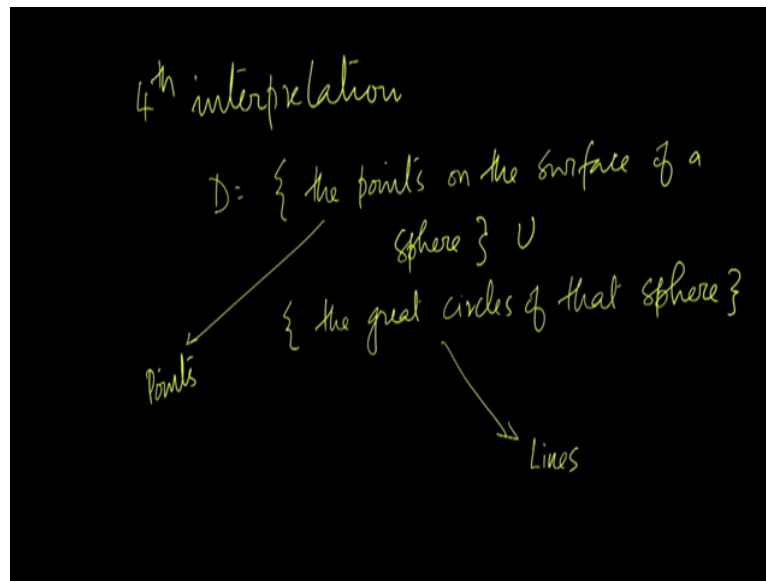 4th interpretation
D: { the points on the surface of a
sphere } ∪
{ the great circles of that sphere }
Points
Lines